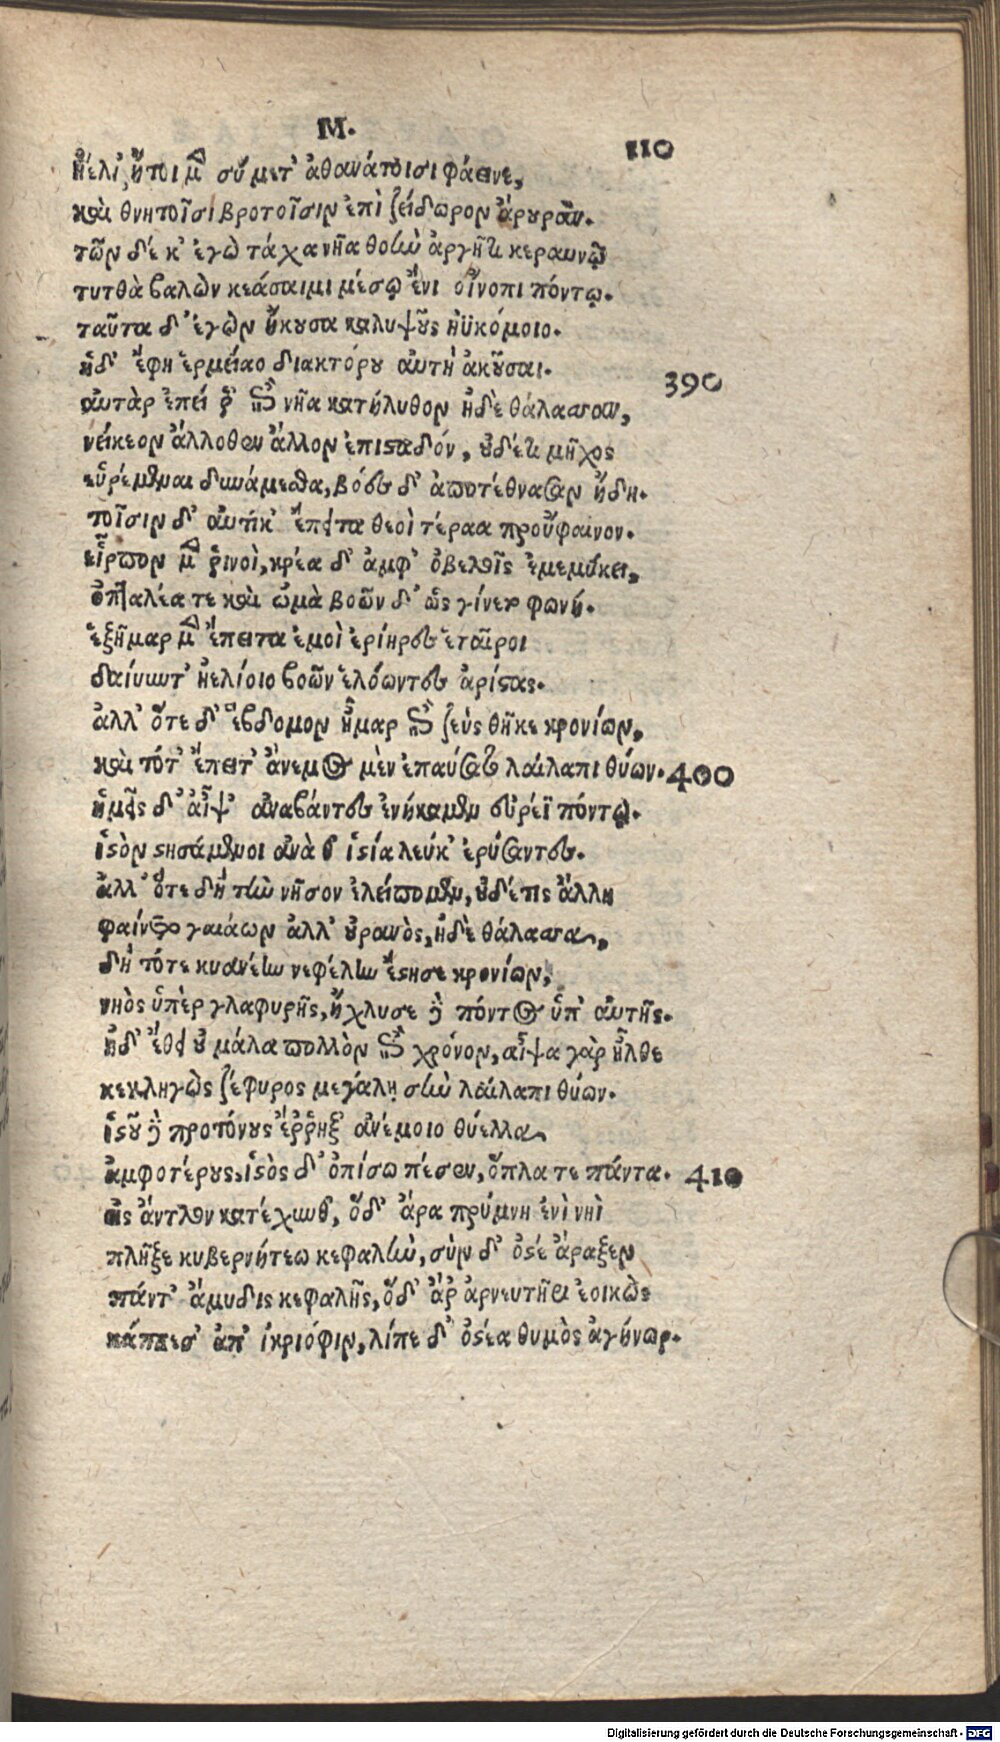 M.
110
ἠέλι, ἤτοι μὲν σὺ μετ' ἀθανάτοισι φάεινε,
καὶ θνητοῖσι βροτοῖσιν ἐπὶ ζείδωρον ἄρουραν.
τῶν δέ κ' ἐγὼ τάχα νῆα θοὴν ἀργῆτι κεραυνῷ
τυτθὰ βαλὼν κεάσαιμι μέσῳ ἔνι οἴνοπι πόντῳ.
ταῦτα δ' ἐγὼν ἤκουσα καλυψοῦς ἠϋκόμοιο.
ἡδ' ἔφη ἑρμείαο διακτόρου αὐτὴ ἀκοῦσαι.
390
αὐτὰρ ἐπεί ῥ' ἐπὶ νῆα κατήλυθον ἠδὲ θάλασσαν,
νείκεον ἄλλοθεν ἄλλον ἐπισταδόν, οὐδέτι μῆχος
εὑρέμεναι δυνάμεσθα, βόες δ' ἀποτέθνασαν ἤδη.
τοῖσιν δ' αὐτίκ' ἔπειτα θεοὶ τέραα προὔφαινον.
εἷρπον μὲν ῥινοὶ, κρέα δ' ἀμφ' ὀβελοῖς ἐμεμύκει,
ὀπταλέα τε καὶ ὠμὰ βοῶν δ' ὣς γίνετο φωνή.
ἑξῆμαρ μὲν ἔπειτα ἐμοὶ ἐρίηρες ἑταῖροι
δαίνυντ' ἠελίοιο βοῶν ἑλόωντες ἀρίστας.
ἀλλ' ὅτε δ' ἕβδομον ἦμαρ ἐπὶ ζεὺς θῆκε κρονίων,
καὶ τότ' ἔπειτ' ἄνεμος μὲν ἐπαύσατο λαίλαπι θύων. 400
ἡμεῖς δ' αἶψ' ἀναβάντες ἐνήκαμεν εὐρέϊ πόντῳ.
ἱστὸν στησάμενοι ἀνὰ θ' ἱστία λεύκ' ἐρύσαντες.
ἀλλ' ὅτε δὴ τὴν νῆσον ἐλείπομεν, οὐδέ τις ἄλλη
φαίνετο γαιάων ἀλλ' οὐρανὸς, ἠδὲ θάλασσα,
δὴ τότε κυανέην νεφέλην ἔστησε κρονίων,
νηὸς ὕπερ γλαφυρῆς, ἤχλυσε δὲ πόντος ὑπ' αὐτῆς.
ἡδ' ἔθει οὐ μάλα πολλὸν ἐπὶ χρόνον, αἶψα γὰρ ἦλθε
κεκληγὼς ζέφυρος μεγάλῃ σὺν λαίλαπι θύων.
ἱστοῦ δὲ προτόνους ἔῤῥηξ' ἀνέμοιο θύελλα
ἀμφοτέρους, ἱστὸς δ' ὀπίσω πέσεν, ὅπλα τε πάντα. 410
εἰς ἄντλον κατέχυνθ', ὅδ' ἄρα πρύμνη ἐνὶ νηὶ
πλῆξε κυβερνήτεω κεφαλὴν, σὺν δ' ὀστέ' ἄραξεν
πάντ' ἄμυδις κεφαλῆς, ὅδ' ἄρ' ἀρνευτῆρι ἐοικὼς
κάππεσ' ἀπ' ἰκριόφιν, λίπε δ' ὀστέα θυμὸς ἀγήνωρ.
Digitalisierung gefördert durch die Deutsche Forschungsgemeinschaft - DFG